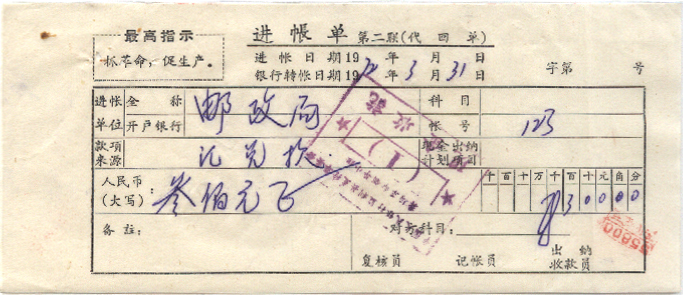 最高指示
抓革命，促生产。
进帐单 第二联(代回单)
进帐日期19 年 月 日
银行转帐日期1972年3月31日
字第 号
进帐单位 全称 邮政局 科目
开户银行 帐号 123
款项来源 汇兑款 现金出纳计划项目
人民币(大写)： 叁佰元正 千百十万千百十元角分 ¥30000
备注： 对方科目：
复核员 记帐员 出纳收款员
收讫
(1)